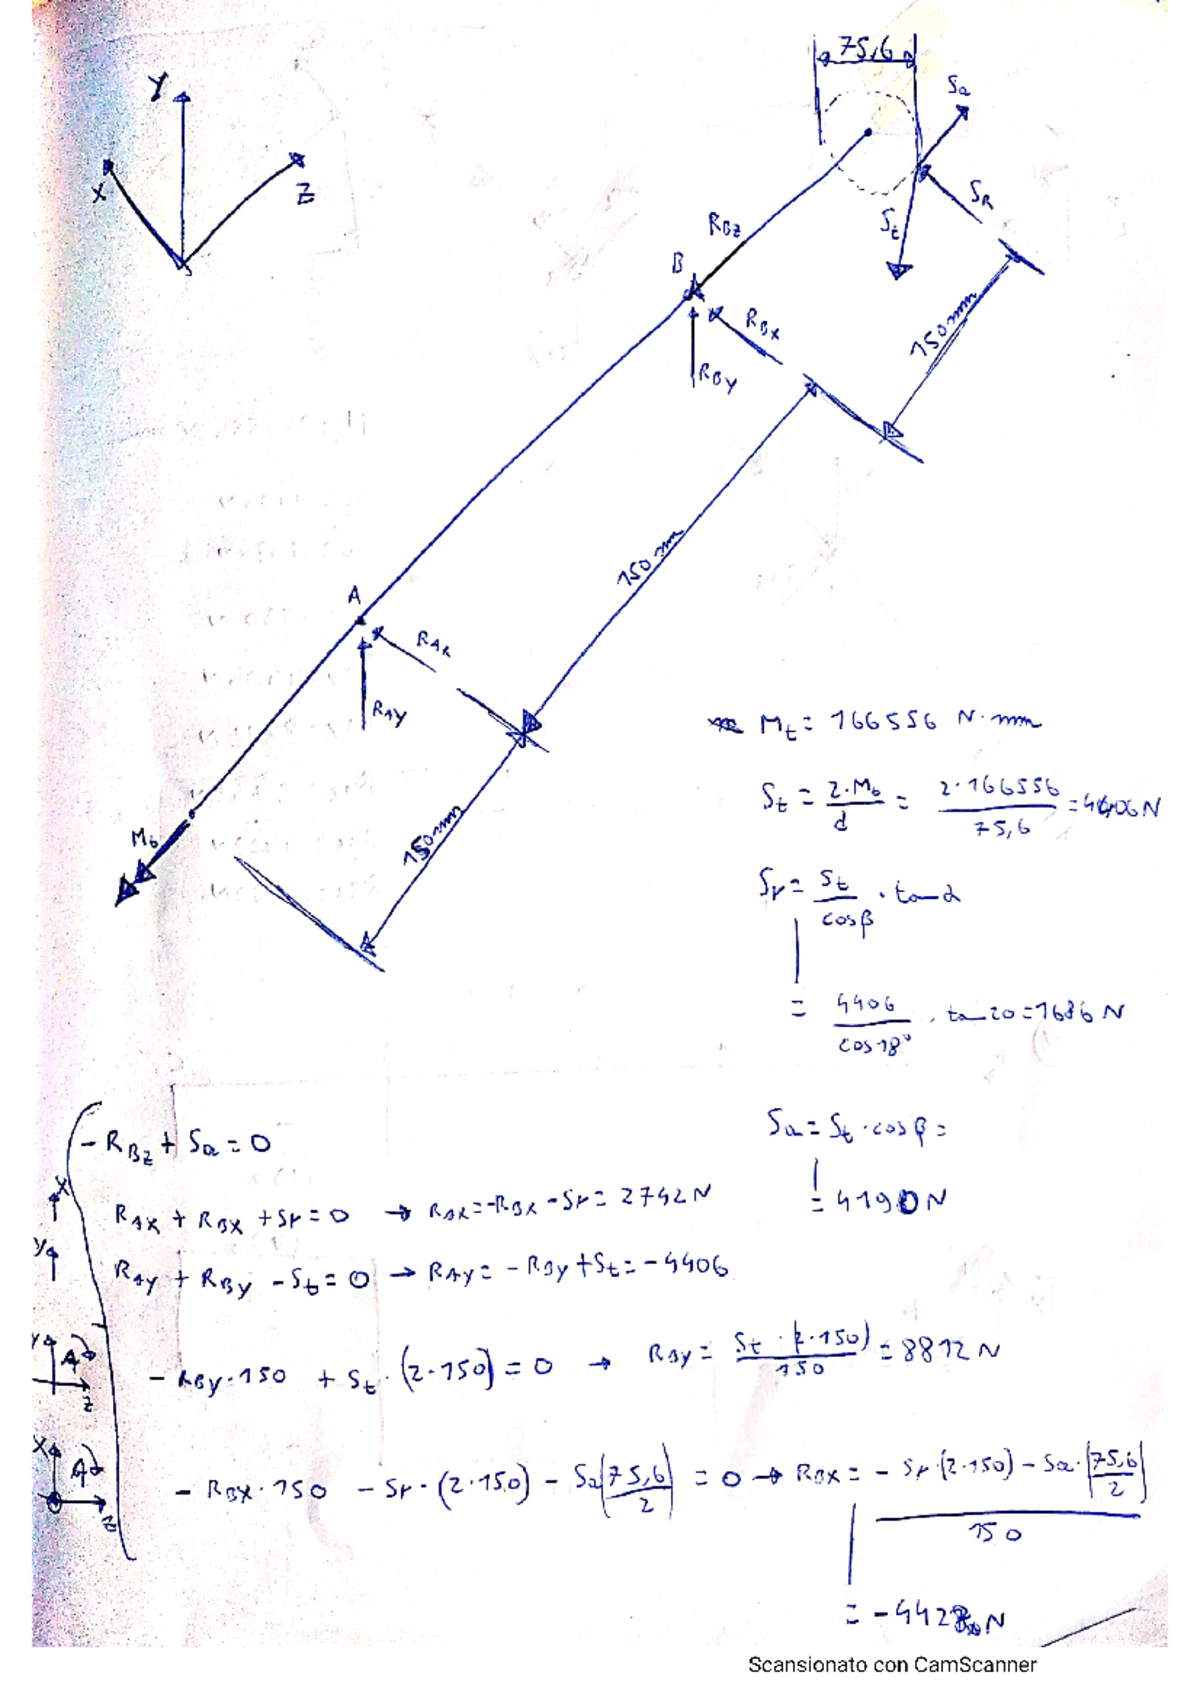 75,6
Y
Sa
X
Z
SR
RBz
St
B
RBX
150mm
RBY
150 mm
A
RAX
RAY
Mt = 166556 N·mm
St = 2·Mb / d = 2·166556 / 75,6 = 4406N
Mb
150mm
Sr = St / cosβ · tanα
= 4406 / cos18° · tan20 = 1686 N
- RBz + Sa = 0
Sa = St · cosβ =
= 4190N
X
RAX + RBX + Sr = 0 → RAX = -RBX - Sr = 2742N
Y
RAY + RBY - St = 0 → RAY = - RBY + St = - 4406
Y
A
Z
- RBY·150 + St·(2·150) = 0 → RBY = St·(2·150) / 150 = 8812 N
X
A
Z
- RBX·150 - Sr·(2·150) - Sa(75,6 / 2) = 0 → RBX = - Sr·(2·150) - Sa·(75,6 / 2) / 150
= - 4428 N
Scansionato con CamScanner